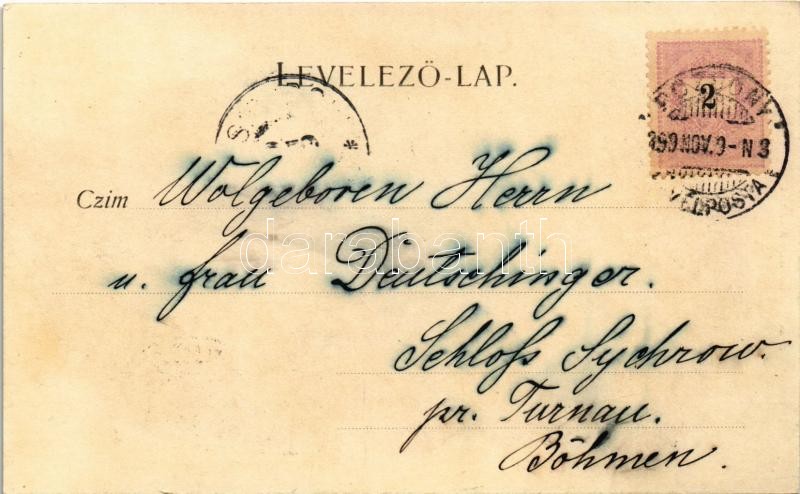 LEVELEZŐ-LAP.
2
899 NOV. 9 - N 3
Czim Wolgeboren Herrn
u. frau Deutschinger.
darabanth
Schloß Sychrow.
pr. Turnau.
Böhmen.